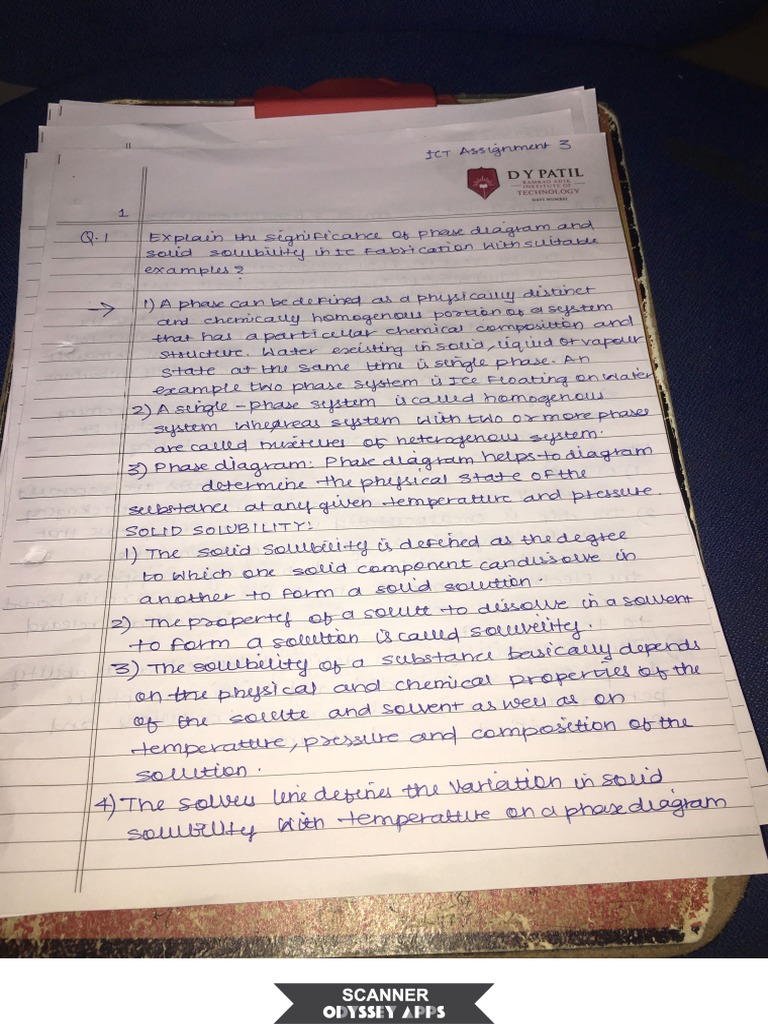 ICT Assignment 3
D Y PATIL
RAMRAO ADIK
INSTITUTE OF
TECHNOLOGY
NAVI MUMBAI
1
Q.1 Explain the significance of phase diagram and
solid solubility in IC Fabrication with suitable
examples?
→ 1) A phase can be defined as a physically distinct
and chemically homogenous portion of a system
that has a particular chemical composition and
structure. Water existing in solid, liquid or vapour
state at the same time is single phase. An
example two phase system is Ice Floating on water
2) A single-phase system is called homogenous
system whereas system with two or more phases
are called mixtures of heterogenous system.
3) Phase diagram: Phase diagram helps to diagram
determine the physical state of the
substance at any given temperature and pressure.
SOLID SOLUBILITY:
1) The solid Solubility is defined as the degree
to which one solid component can dissolve in
another to form a solid solution.
2) The property of a solute to dissolve in a solvent
to form a solution is called solubility.
3) The solubility of a substance basically depends
on the physical and chemical properties of the
of the solute and solvent as well as on
temperature, pressure and composition of the
solution.
4) The solvus line defines the variation in solid
solubility with temperature on a phase diagram
SCANNER
ODYSSEY APPS